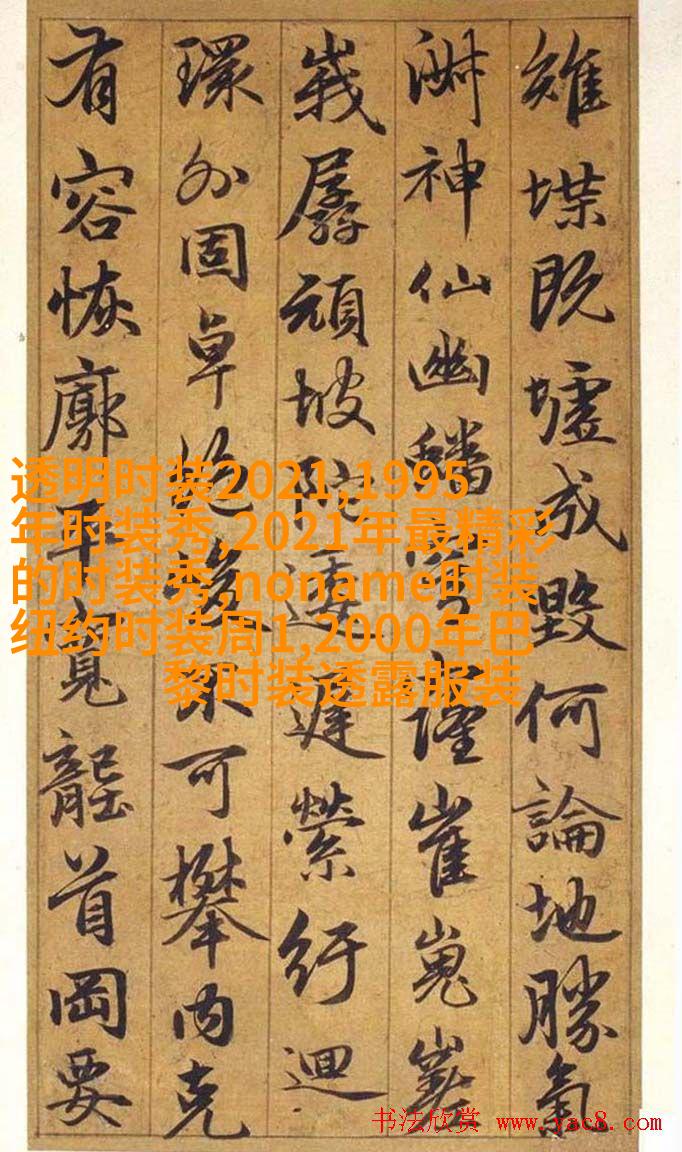 雉堞既墟成毀何論地勝氣
淋神仙幽蟠窿崔嵬嵯
峩孱頑坡陀逶遲縈紆迴
環外固卓絕不可攀内克
有容恢廓平寬首岡要
透明时装2021,1995
年时装秀,2021年最精彩
的时装秀,noname时装
纽约时装周1,2000年巴
黎时装透露服装
书法欣赏 www.yac8.com